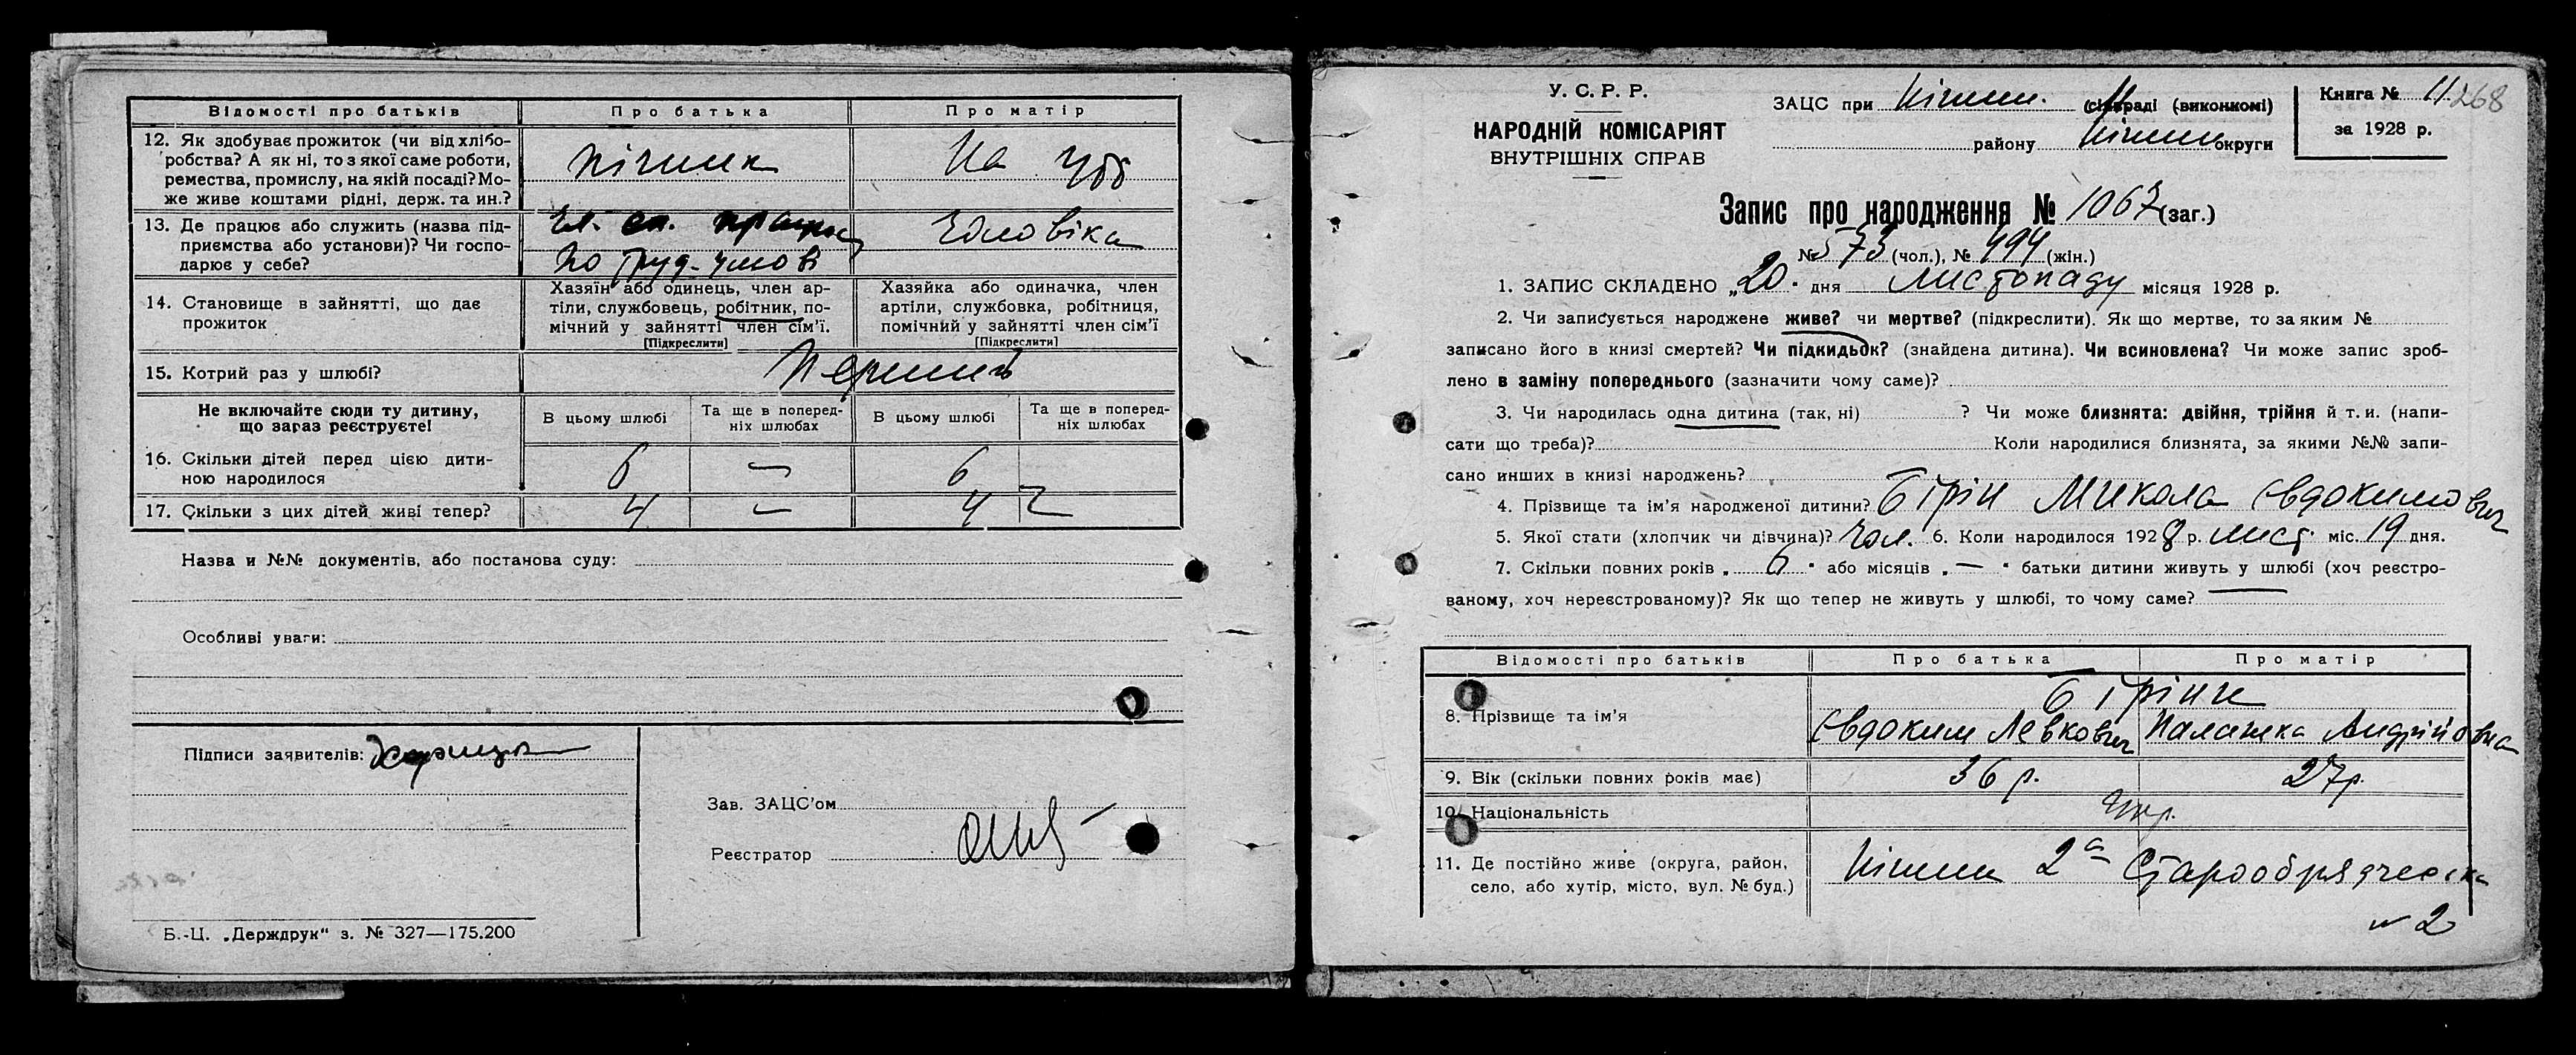 Відомості про батьків Про батька Про матір
12. Як здобуває прожиток (чи від хлібо-
робства? А як ні, то з якої саме роботи,
ремества, промислу, на якій посаді? Мо-
же живе коштами рідні, держ. та ин.?
пічник На утр
13. Де працює або служить (назва під-
приємства або установи)? Чи госпо-
дарює у себе?
Чоловіка
по труд-умові
14. Становище в зайнятті, що дає
прожиток
Хазяїн або одинець, член ар-
тіли, службовець, робітник, по-
мічний у зайнятті член сім'ї.
[Підкреслити]
Хазяйка або одиначка, член
артіли, службовка, робітниця,
помічний у зайнятті член сім'ї
[Підкреслити]
15. Котрий раз у шлюбі? Перший
Не включайте сюди ту дитину,
що зараз реєструєте!
В цьому шлюбі Та ще в поперед-
ніх шлюбах В цьому шлюбі Та ще в поперед-
ніх шлюбах
16. Скільки дітей перед цією дити-
ною народилося 6 — 6
17. Скільки з цих дітей живі тепер? 4 — 4 —
Назва и №№ документів, або постанова суду:
Особливі уваги:
Підписи заявителів:
Зав. ЗАЦС'ом
Реєстратор
Б.-Ц. „Держдрук" з. № 327—175.200
У. С. Р. Р.
НАРОДНІЙ КОМІСАРІЯТ
ВНУТРІШНІХ СПРАВ
ЗАЦС при (сільраді (виконкомі)
району округи
Книга № 11 268
за 1928 р.
Запис про народження № 1067 (заг.)
№ 573 (чол.), № 494 (жін.)
1. ЗАПИС СКЛАДЕНО „20" дня Листопаду місяця 1928 р.
2. Чи записується народжене живе? чи мертве? (підкреслити). Як що мертве, то за яким №
записано його в книзі смертей? Чи підкидьок? (знайдена дитина). Чи всиновлена? Чи може запис зроб-
лено в заміну попереднього (зазначити чому саме)?
3. Чи народилась одна дитина (так, ні) ? Чи може близнята: двійня, трійня й т. и. (напи-
сати що треба)? Коли народилися близнята, за якими №№ запи-
сано инших в книзі народжень?
4. Прізвище та ім'я народженої дитини? Бірін Микола Євдокимович
5. Якої стати (хлопчик чи дівчина)? Чол. 6. Коли народилося 1928 р. лист. міс. 19 дня.
7. Скільки повних років „ 6 " або місяців „ — " батьки дитини живуть у шлюбі (хоч реєстро-
ваному, хоч нереєстрованому)? Як що тепер не живуть у шлюбі, то чому саме?
Відомості про батьків Про батька Про матір
8. Прізвище та ім'я Біріни
Євдоким Левкович Палажка Андрійовна
9. Вік (скільки повних років має) 36 р. 27 р.
10. Національність Укр.
11. Де постійно живе (округа, район,
село, або хутір, місто, вул. № буд.)
2а Старообрядческа
№ 2